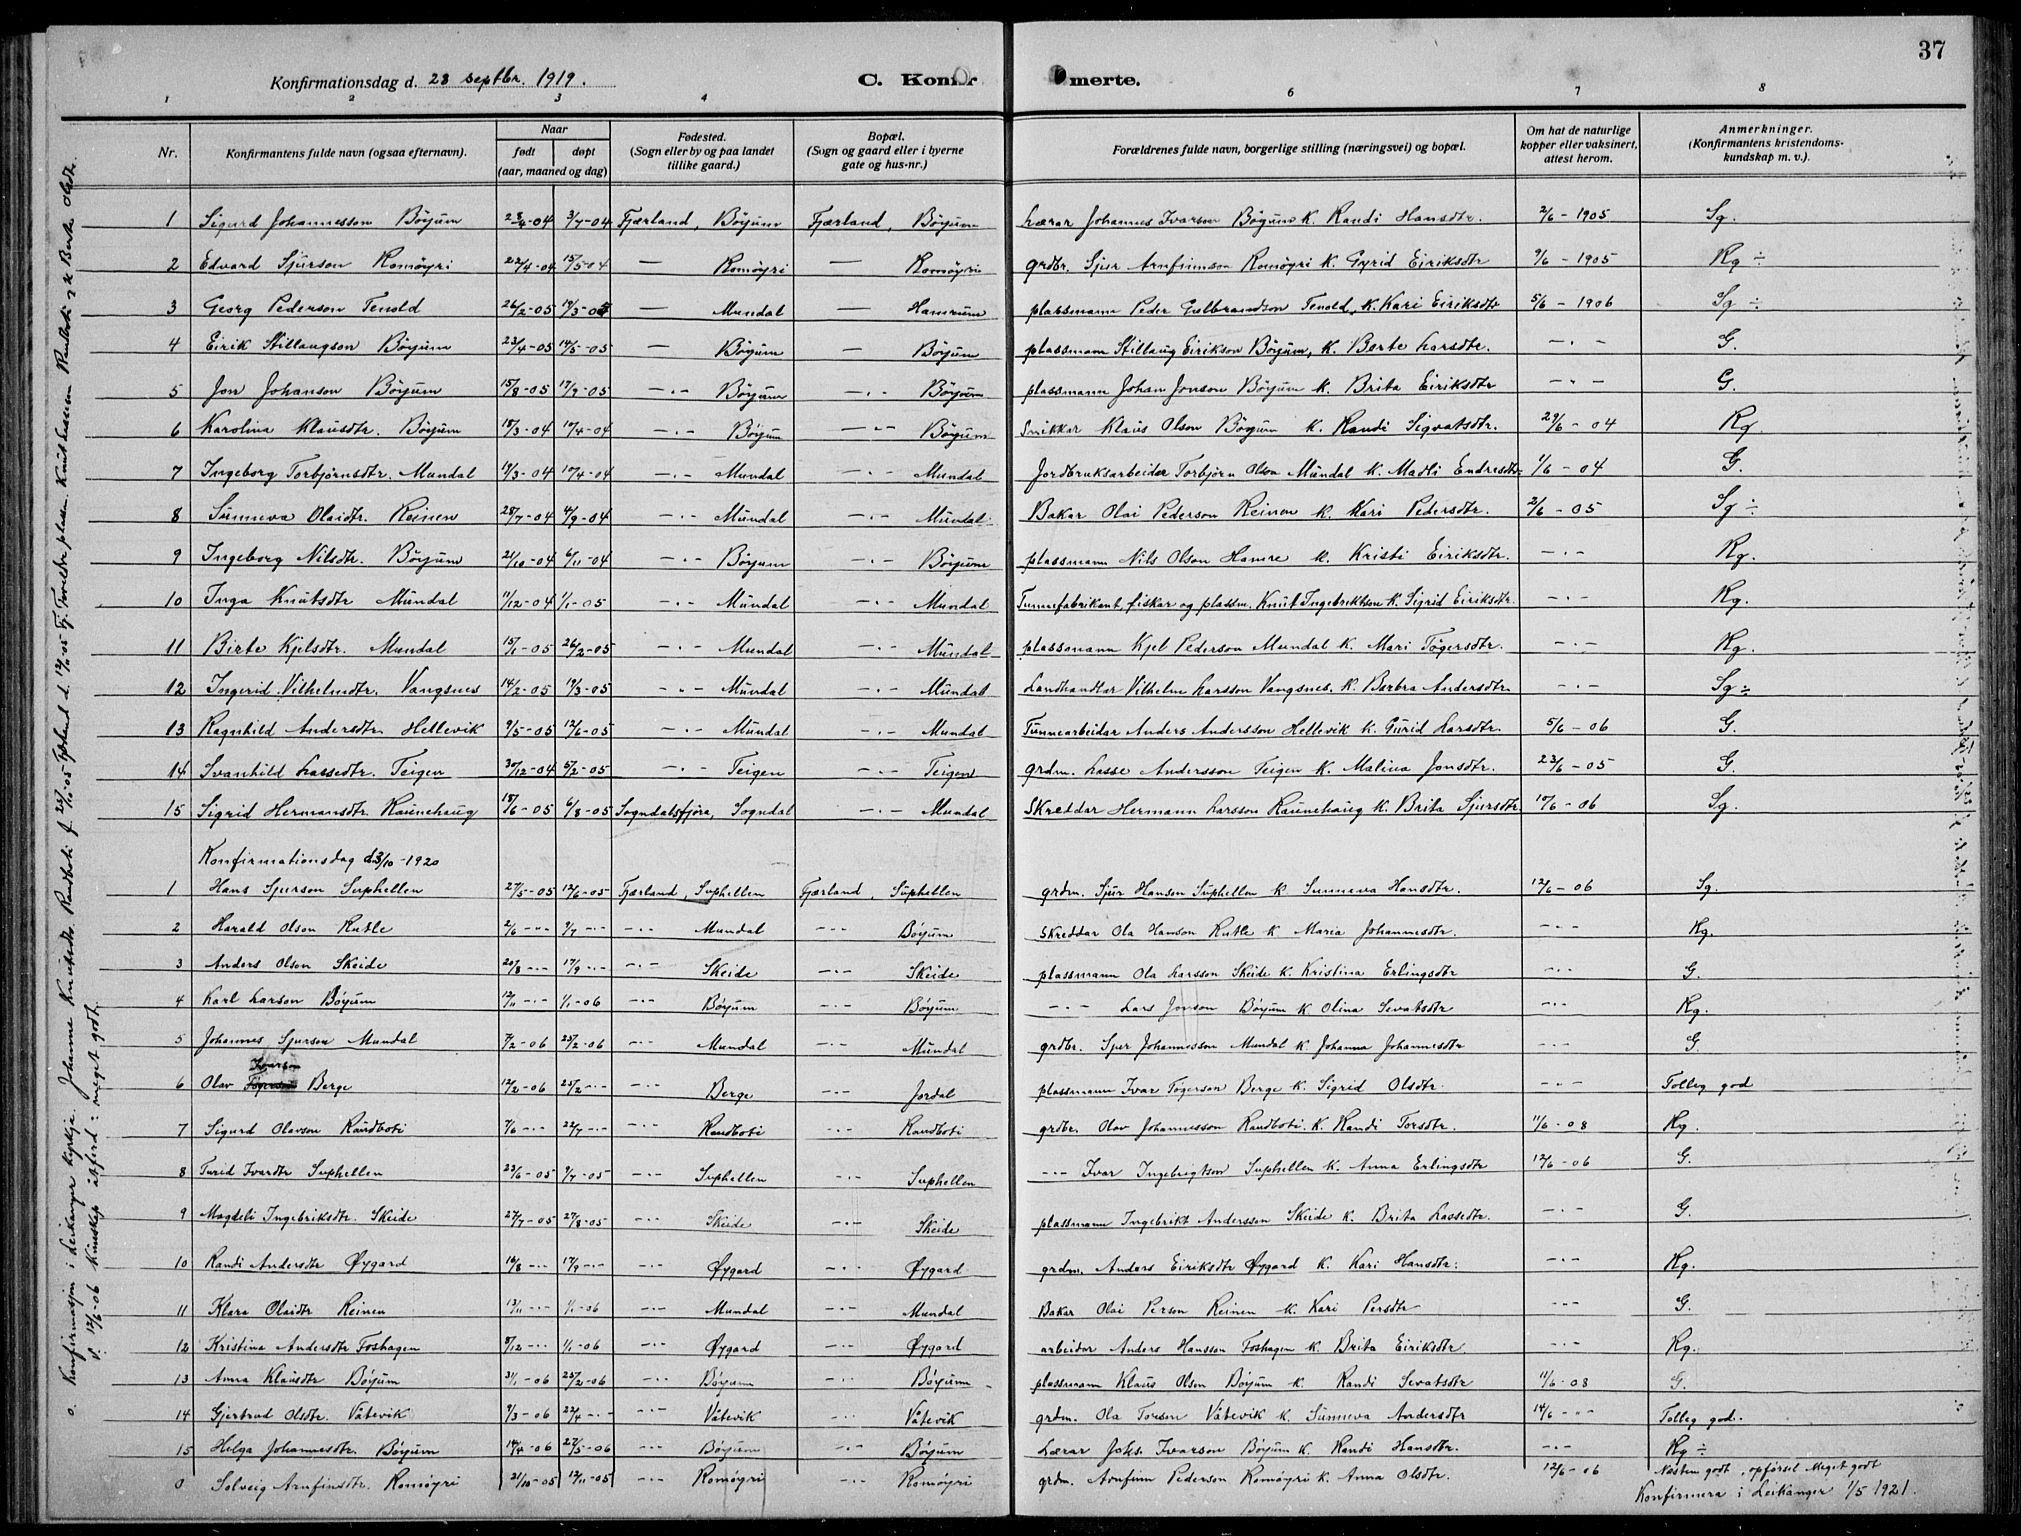 37
Konfirmationsdag d. 28 septbr. 1919. C. Konfir merte.
1 2 3 4 6 7 8
Nr. Konfirmantens fulde navn (ogsaa efternavn). Naar født døpt (aar, maaned og dag) Fødested. (Sogn eller by og paa landet tillike gaard.) Bopæl. (Sogn og gaard eller i byerne gate og hus-nr.) Forældrenes fulde navn, borgerlige stilling (næringsvei) og bopæl. Om hat de naturlige kopper eller vaksinert, attest herom. Anmerkninger. (Konfirmantens kristendoms-kundskap m. v.).
1 Sigurd Johannesson Böyum 28/4-04 3/7-04 Fjærland, Böyum Fjærland, Böyum Lærar Johannes Ivarson Böyum k. Randi Hansdtr. 2/6-1905 Sg.
2 Edvard Sjurson Romöyri 22/4-04 15/5-04 — Romöyri — Romöyri grdbr. Sjur Arnfinnson Romöyri k. Gyrid Eiriksdtr 9/6-1905 Rg ÷
3 Georg Pederson Tenold 26/2-05 19/3-05 — Mundal — Hamrum plassmann Peder Gulbrandson Tenold, k. Kari Eiriksdtr 5/6-1906 Sg ÷
4 Eirik Stillaugson Böyum 23/4-05 14/5-05 — Böyum — Böyum plassmann Stillaug Eirikson Böyum, k. Berte Larsdtr. —.— G.
5 Jon Johanson Böyum 15/8-05 17/9-05 —.— Böyum —.— Böyum plassmann Johan Jonson Böyum k. Brita Eiriksdtr —.— G.
6 Karolina Klausdtr. Böyum 18/3-04 10/4-04 —.— Böyum —.— Böyum Snikkar Klaus Olson Böyum k. Randi Sigvatsdtr. 29/6-04 Rg.
7 Ingeborg Torbjörnsdtr. Mundal 19/3-04 10/4-04 —.— Mundal —.— Mundal Jordbruksarbeider Torbjörn Olson Mundal k. Madli Endresdtr. 1/6-04 G.
8 Sunneva Olaidtr. Reinen 28/7-04 4/9-04 —.— Mundal —.— Mundal Bakar Olai Pederson Reinen k. Kari Pedersdtr. 2/6-05 Sg ÷
9 Ingeborg Nilsdtr. Böyum 21/10-04 6/11-04 —.— Böyum —.— Böyum plassmann Nils Olson Hamre k. Kristi Eiriksdtr. —.— Rg.
10 Inga Knutsdtr Mundal 11/12-04 1/1-05 —.— Mundal —.— Mundal Tunnefabrikant, fiskar og plassm. Knut Ingebriktson k. Sigrid Eiriksdtr. —.— Rg.
11 Birte Kjelsdtr. Mundal 15/1-05 26/2-05 —.— Mundal —.— Mundal plassmann Kjel Pederson Mundal k. Mari Tögersdtr. —.— Rg.
12 Ingerid Vilhelmdtr. Vangsnes 14/2-05 19/3-05 —.— Mundal —.— Mundal Landhandlar Vilhelm Larsson Vangsnes. k. Barbra Andersdtr. —.— Sg ÷
13 Ragnhild Andersdtr Hellevik 9/5-05 12/6-05 —.— Mundal —.— Mundal Tunnearbeidar Anders Andersson Hellevik k. Gurid Larsdtr. 5/6-06 G.
14 Svanhild Lassedtr. Teigen 30/12-04 5/2-05 —.— Teigen —.— Teigen grdm. Lasse Andersson Teigen k. Malina Jonsdtr. 23/6-05 G.
15 Sigrid Hermansdtr. Raunehaug 18/6-05 6/8-05 Sogndalsfjöra, Sogndal —.— Mundal Skreddar Hermann Larsson Raunehaug k. Brita Sjursdtr. 10/6-06 Sg.
Konfirmationsdag d. 3/10-1920
1 Hans Sjurson Suphellen 27/5-05 12/6-05 Fjærland, Suphellen Fjærland, Suphellen grdm. Sjur Hanson Suphellen k Sunneva Hansdtr. 12/6-06 Sg.
2 Harald Olson Rutle 2/6 -.- 9/7 -.- -.- Mundal -.- Böyum Skreddar Ola Hanson Rutle k Maria Johannesdtr. -.- Rg.
3 Anders Olson Skeide 20/8 -.- 17/9 -.- -.- Skeide -.- Skeide plassmann Ola Larsson Skeide k. Kristina Erlingsdtr -.- G.
4 Karl Larson Böyum 12/11 -.- 1/1-06 -.- Böyum -.- Böyum -.- Lars Jonson Böyum k Olina Sevatsdtr -.- Rg.
5 Johannes Sjurson Mundal 7/2-06 25/2-06 -.- Mundal -.- Mundal grdbr. Sjur Johannesson Mundal k. Johanna Johannesdtr -.- G.
Ivarson
6 Olav Tögerson Berge 12/2-06 25/2 -.- -.- Berge -.- Jordal plassmann Ivar Tögerson Berge k. Sigrid Olsdtr. -.- Tolleg god
7 Sigurd Olavson Raudboti 7/6 -.- 22/7 -.- -.- Raudboti -.- Raudboti grdbr. Olav Johannesson Raudboti. k. Randi Torsdtr. 11/6-08 Rg.
8 Turid Ivardtr Suphellen 23/6-05 9/7-05 -.- Suphellen -.- Suphellen -.- Ivar Ingebrigtson Suphellen k. Anna Erlingsdtr 12/6-06 G.
9 Magdeli Ingebriksdtr. Skeide 27/7-05 27/8-05 -.- Skeide -.- Skeide plassmann Ingebrikt Andersson Skeide k. Brita Lassedtr. -.- G.
10 Randi Andersdtr Øygard 16/8 -.- 17/9 -.- -.- Øygard -.- Øygard grdm. Anders Eiriksdtr Øygard k. Kari Hansdtr. -.- Rg.
11 Klara Olaidtr Reinen 13/11 -.- 1/1-06 -.- Mundal -.- Mundal Bakar Olai Person Reinen k. Kari Persdtr -.- G.
12 Kristina Andersdtr Foshagen 8/12 -.- 1/1-06 -.- Øygard -.- Øygard arbeidar Anders Hansson Foshagen k. Brita Eiriksdtr -.- Rg.
13 Anna Klausdtr Böyum 31/1-06 25/2-06 -.- Böyum -.- Böyum plassmann Klaus Olson Böyum k. Randi Sevatsdtr 11/6-08 G.
14 Gjertrud Olsdtr. Våtevik 9/3-06 22/4 -.- -.- Våtevik -.- Våtevik grdm. Ola Torson Våtevik k. Sunneva Andersdtr 14/6 -.- Tolleg god.
15 Helga Johannesdtr. Böyum 14/4-06 27/5-06 -.- Böyum -.- Böyum Lærar Johs. Ivarson Böyum k. Randi Hansdtr. -.- Rg ÷
0 Solveig Arnfinsdtr. Romöyri 21/10-05 12/11-05 -.- Romöyri -.- Romöyri grdm. Arnfinn Pederson Romöyri k. Anna Olsdtr. 12/6-06 Nesten godt, opförsel Meget godt
Konfirmera i Leikanger 1/5 1921.
o. Konfirmasjon i Leikanger kyrkje. Johanne Knutsdtr. Raudboti f. 22/10-05 Fjærland d. 12/11-05 Fj. Foreldre plassm. Knut Lassesen Raudboti og k. Berte Olsdtr.
v. 12/6-06 Kunnskap åtferd: meget godt.